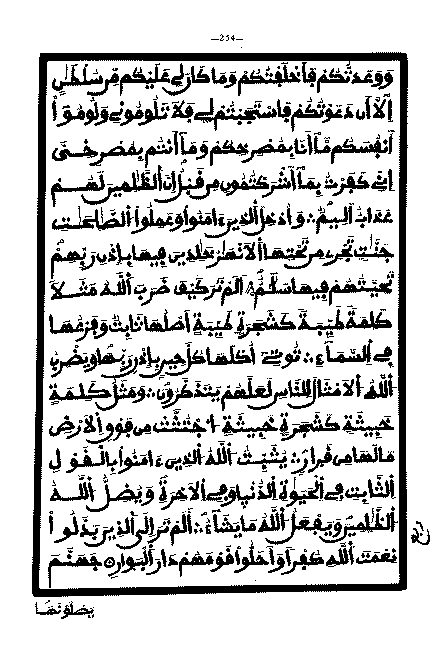 —254—
وَوَعَدتُّكُمْ فَأَخْلَفْتُكُمْ وَمَا كَانَ لِي عَلَيْكُم مِّن سُلْطَٰنٍ
اِلَّا أَن دَعَوْتُكُمْ فَاسْتَجَبْتُمْ لِي فَلَا تَلُومُونِي وَلُومُوٓا
أَنفُسَكُم مَّآ أَنَا بِمُصْرِخِكُمْ وَمَآ أَنتُم بِمُصْرِخِيَّ
إِنِّي كَفَرْتُ بِمَآ أَشْرَكْتُمُونِ مِن قَبْلُ إِنَّ ٱلظَّٰلِمِينَ لَهُمْ
عَذَابٌ أَلِيمٌ ۝ وَأُدْخِلَ ٱلَّذِينَ ءَامَنُوا وَعَمِلُوا ٱلصَّٰلِحَٰتِ
جَنَّٰتٍ تَجْرِي مِن تَحْتِهَا ٱلْأَنْهَٰرُ خَٰلِدِينَ فِيهَا بِإِذْنِ رَبِّهِمْ
تَحِيَّتُهُمْ فِيهَا سَلَٰمٌ ۝ أَلَمْ تَرَ كَيْفَ ضَرَبَ ٱللَّهُ مَثَلًا
كَلِمَةً طَيِّبَةً كَشَجَرَةٍ طَيِّبَةٍ أَصْلُهَا ثَابِتٌ وَفَرْعُهَا
فِي ٱلسَّمَآءِ ۝ تُوتِيٓ أُكْلَهَا كُلَّ حِينٍ بِإِذْنِ رَبِّهَا وَيَضْرِبُ
ٱللَّهُ ٱلْأَمْثَالَ لِلنَّاسِ لَعَلَّهُمْ يَتَذَكَّرُونَ ۝ وَمَثَلُ كَلِمَةٍ
خَبِيثَةٍ كَشَجَرَةٍ خَبِيثَةٍ اجْتُثَّتْ مِن فَوْقِ ٱلْأَرْضِ
مَا لَهَا مِن قَرَارٍ ۝ يُثَبِّتُ ٱللَّهُ ٱلَّذِينَ ءَامَنُوا بِٱلْقَوْلِ
ٱلثَّابِتِ فِي ٱلْحَيَوٰةِ ٱلدُّنْيَا وَفِي ٱلْأَخِرَةِ وَيُضِلُّ ٱللَّهُ
ٱلظَّٰلِمِينَ وَيَفْعَلُ ٱللَّهُ مَا يَشَآءُ ۝ أَلَمْ تَرَ إِلَى ٱلَّذِينَ بَدَّلُوا
نِعْمَتَ ٱللَّهِ كُفْرًا وَأَحَلُّوا قَوْمَهُمْ دَارَ ٱلْبَوَارِ ۝ جَهَنَّمَ
يَصْلَوْنَهَا